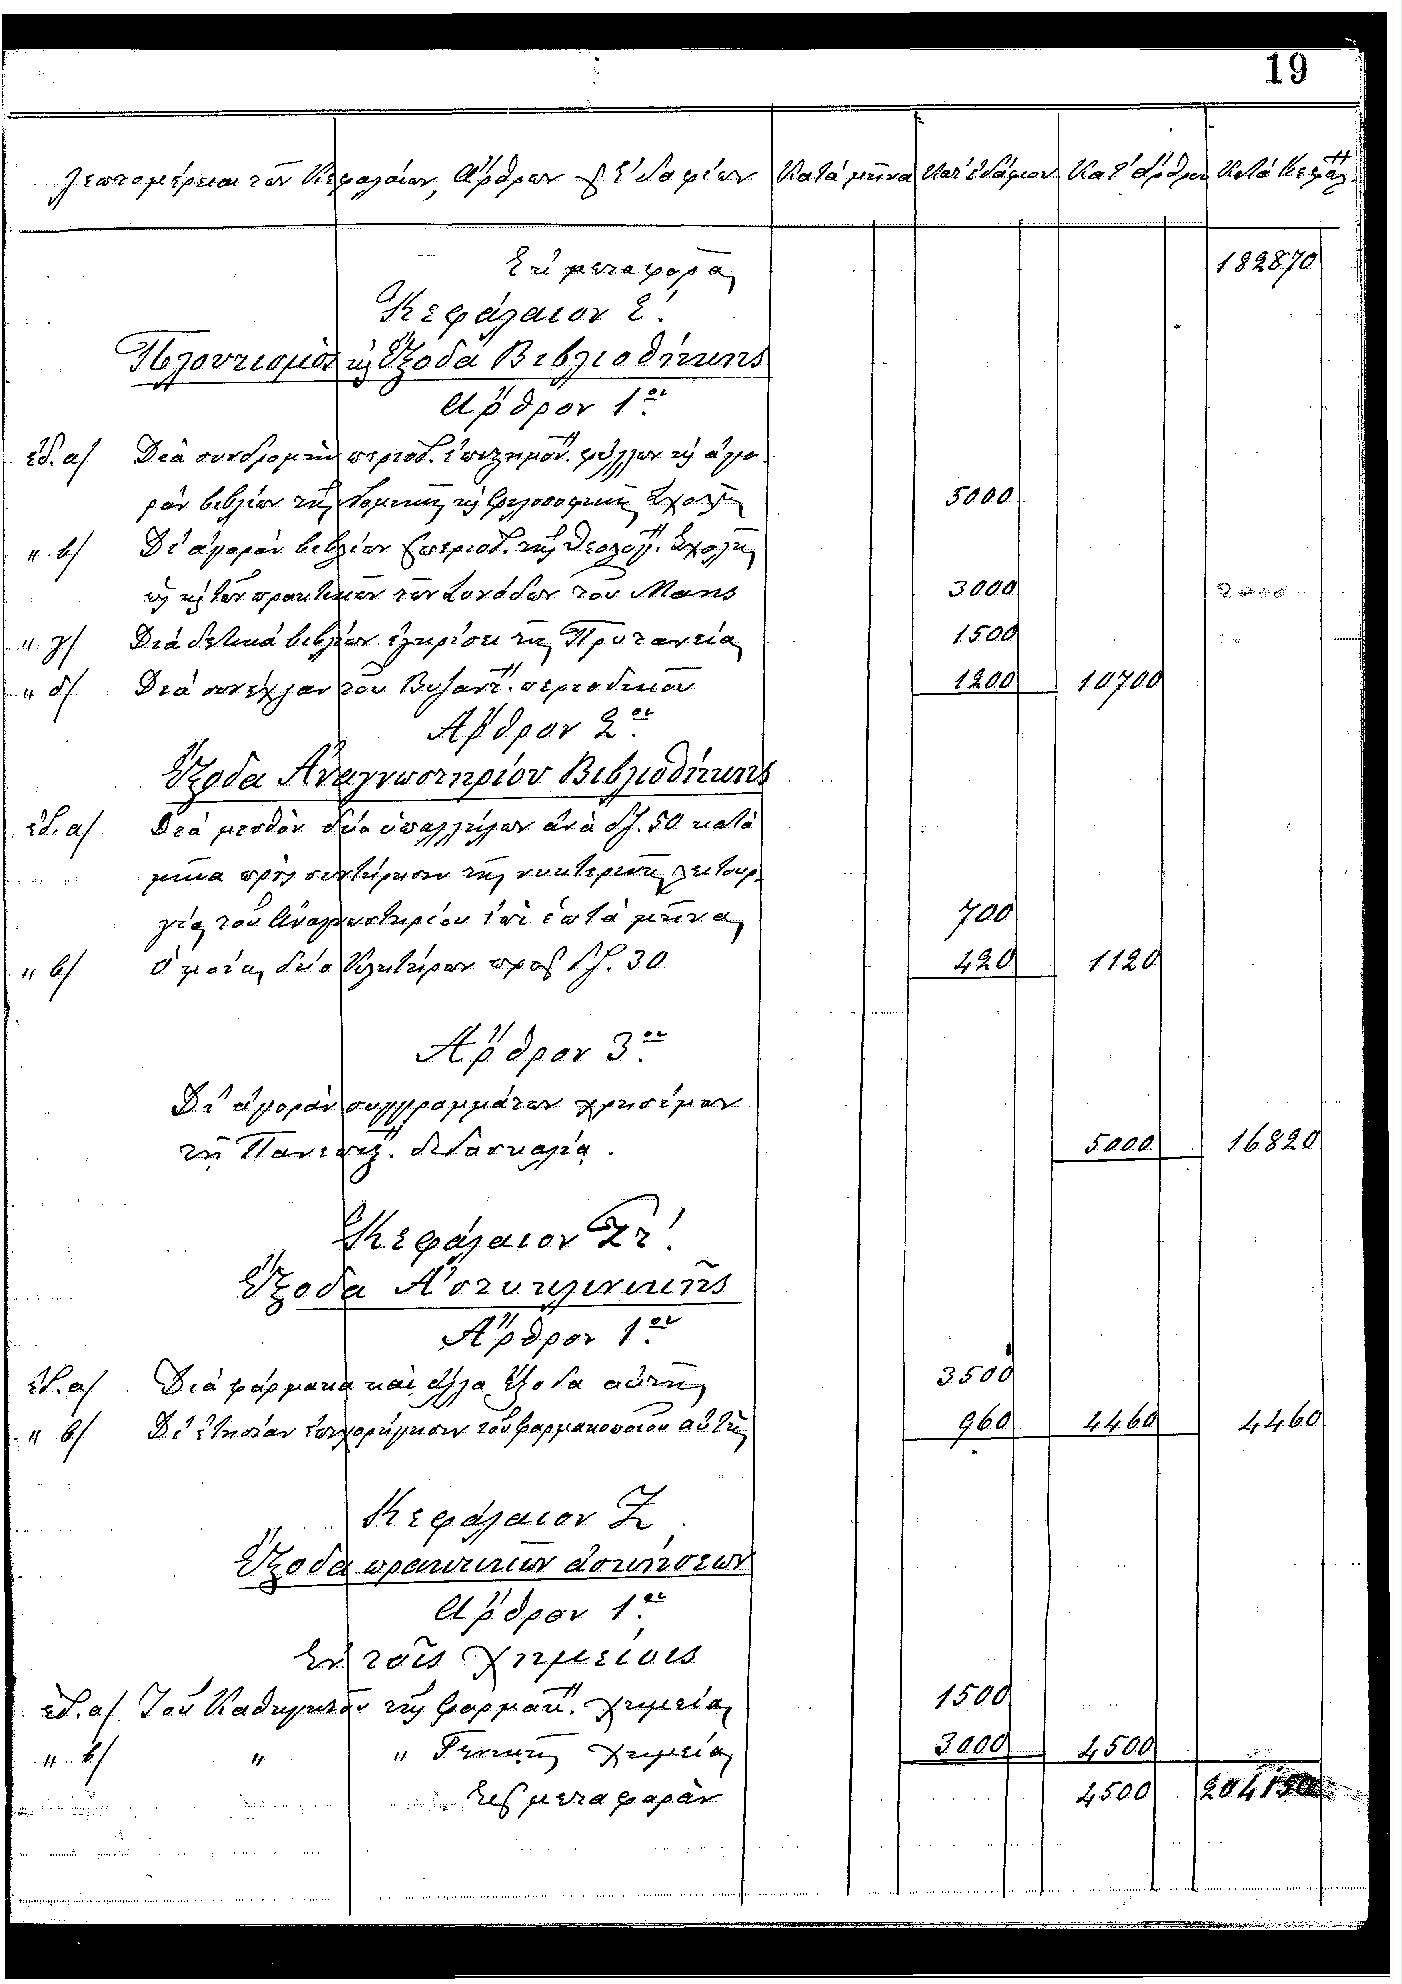 19
Λεπτομέρειαι τῶν Κεφαλαίων, Ἄρθρων & Ἐδαφίων Κατὰ μῆνα Κατ' ἐδάφιον Κατ' ἄρθρον Κατὰ Κεφάλ.
Ἐκ μεταφορᾶς 182870
Κεφάλαιον Ε'.
Πλουτισμὸς κ' Ἔξοδα Βιβλιοθήκης
Ἄρθρον 1ον
ἐδ. α/ Διὰ συνδρομὴν περιοδ. ἐπιστημον. φύλλων κ' ἀγο-
ρὰν βιβλίων τῆς Νομικῆς κ' Φιλοσοφικῆς Σχολῆς 5000
" β/ Δι' ἀγορὰν βιβλίων & περιοδ. τῆς Θεολογ. Σχολῆς
ὡς κ' τῶν πρακτικῶν τῶν Συνόδων τοῦ Mans 3000
" γ/ Διὰ δετικὰ βιβλίων ἐγκρίσει τῆς Πρυτανείας 1500
" δ/ Διὰ συνέχειαν τοῦ Βυζαντ. περιοδικοῦ 1200 10700
Ἄρθρον 2ον
Ἔξοδα Ἀναγνωστηρίου Βιβλιοθήκης
ἐδ. α/ Διὰ μισθὸν δύο ὑπαλλήλων ἀνὰ δρ. 50 κατὰ
μῆνα πρὸς συντήρησιν τῆς νυκτερινῆς λειτουρ-
γίας τοῦ Ἀναγνωστηρίου ἐπὶ ἑπτὰ μῆνας 700
" β/ Ὁμοίως δύο Κλητήρων πρὸς δρ. 30 420 1120
Ἄρθρον 3ον
Δι' ἀγορὰν συγγραμμάτων χρησίμων
τῇ Πανεπισ. διδασκαλίᾳ. 5000 16820
Κεφάλαιον Στ'.
Ἔξοδα Ἀστυκλινικῆς
Ἄρθρον 1ον
ἐδ. α/ Διὰ φάρμακα καὶ ἄλλα ἔξοδα αὐτῆς 3500
" β/ Δι' ἐτησίαν ἐπιχορήγησιν τοῦ φαρμακοποιοῦ αὐτῆς 960 4460 4460
Κεφάλαιον Ζ
Ἔξοδα πρακτικῶν ἀσκήσεων
Ἄρθρον 1ον
Ἐν τοῖς Χημείοις
ἐδ. α/ Τοῦ Καθηγητοῦ τῆς Φαρμακ. Χημείας 1500
" β/ " " Γενικῆς Χημείας 3000 4500
Εἰς μεταφορὰν 4500 204150